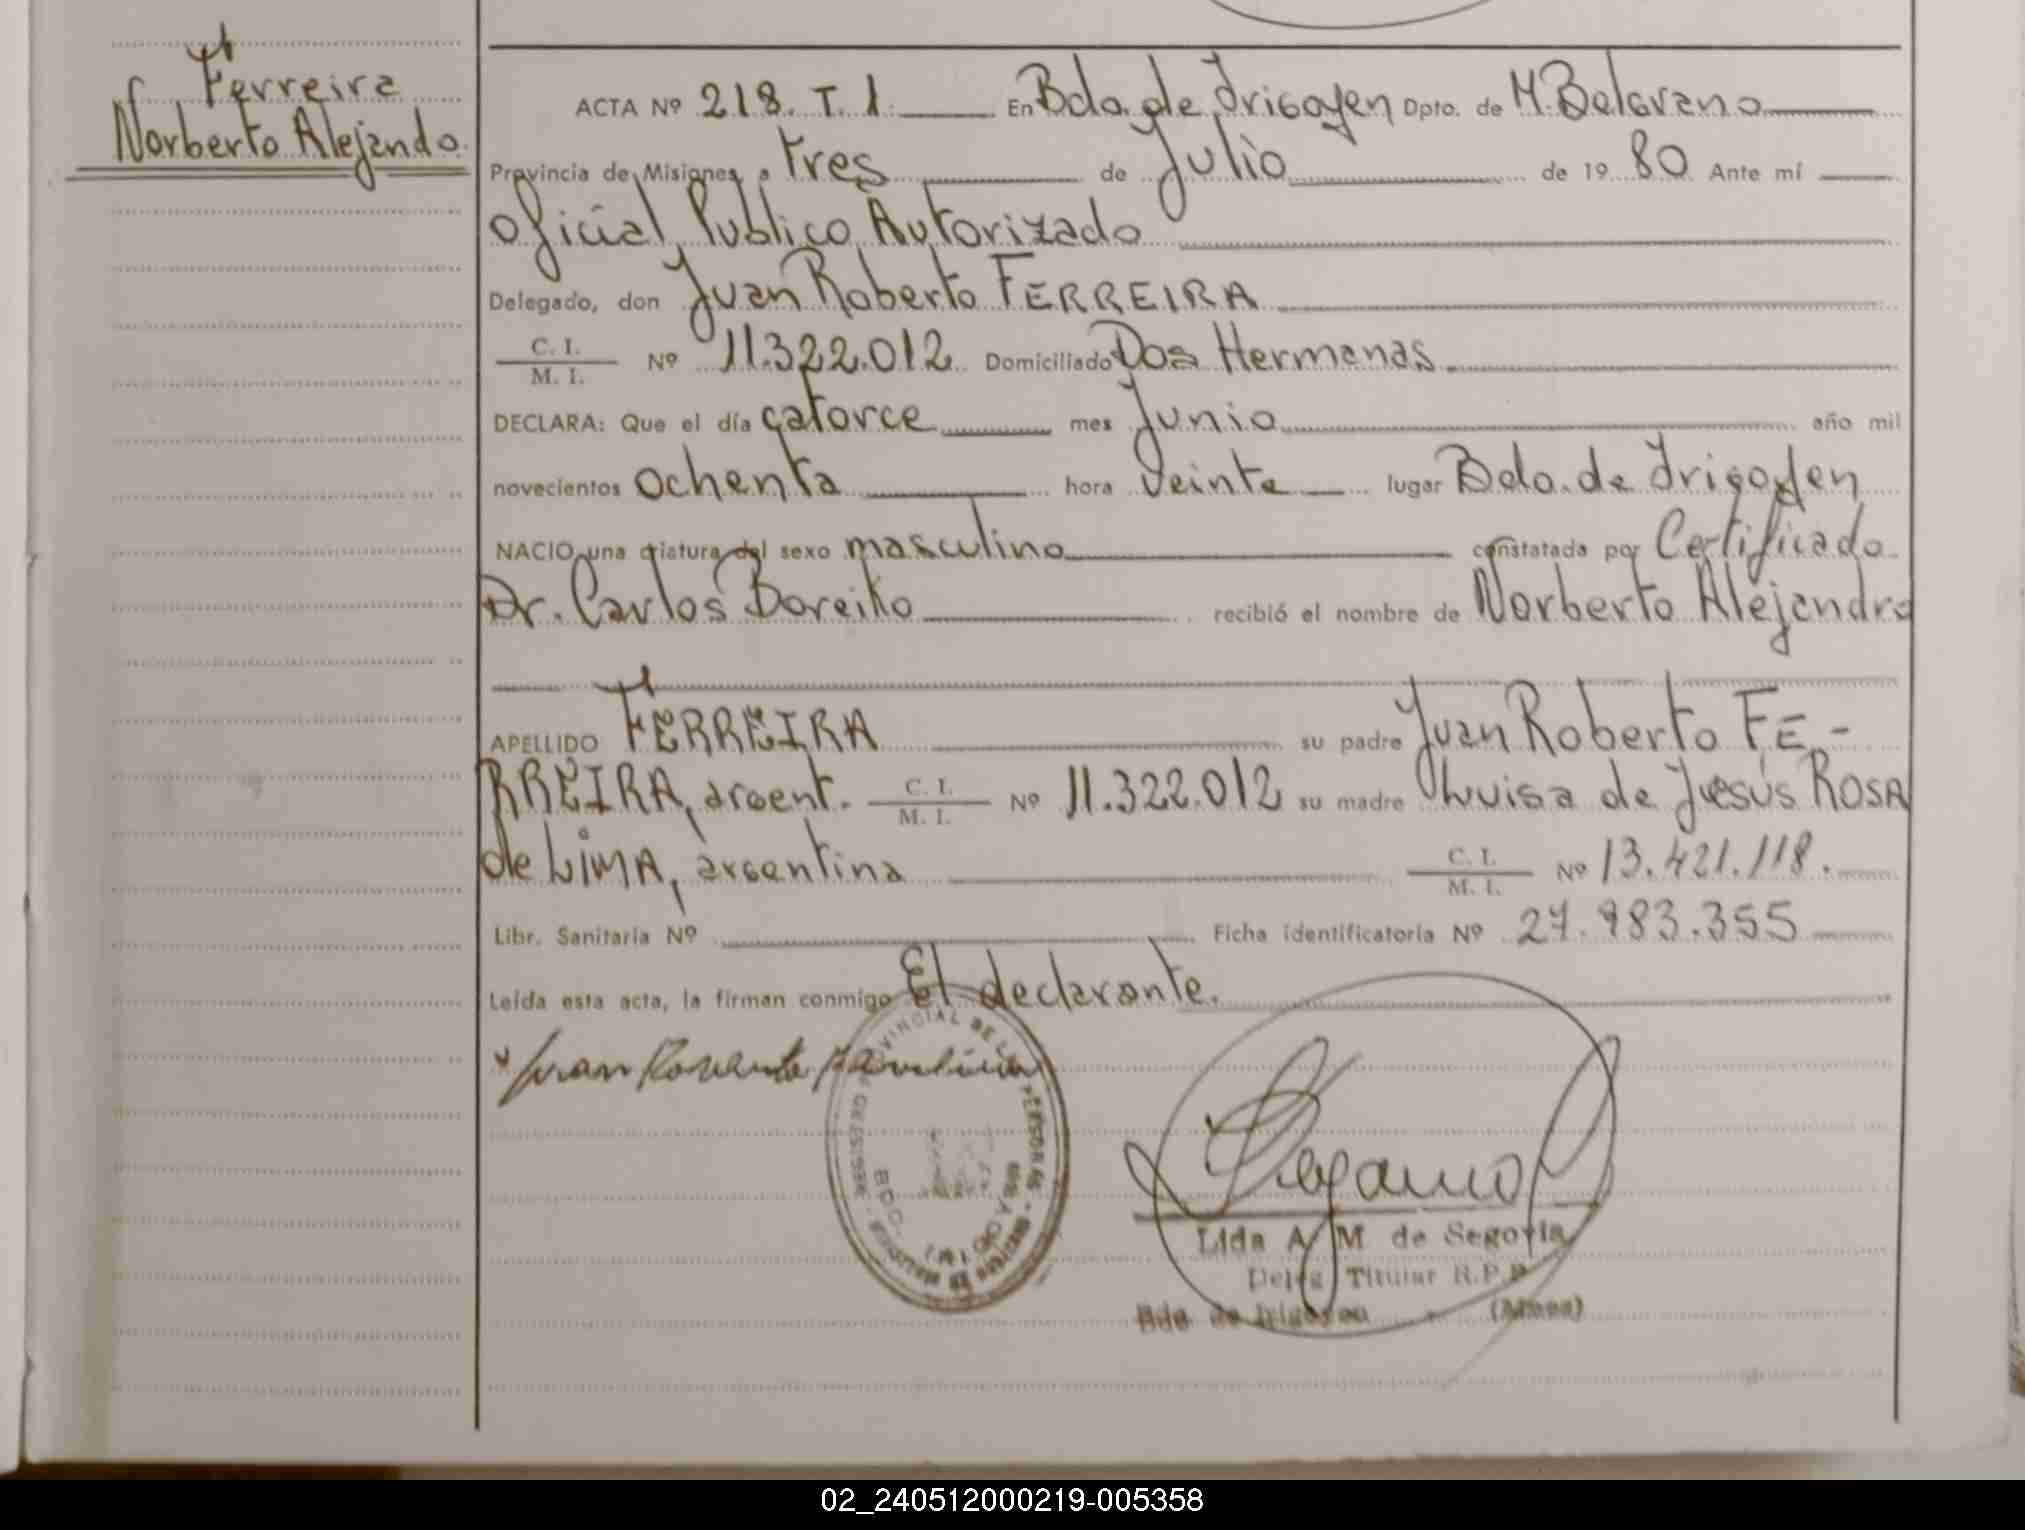 Ferreira
Norberto Alejando.
ACTA Nº 218. T. 1. En Bdo. de Irigoyen Dpto. de M. Belgrano
Provincia de Misiones, a tres de Julio de 1980 Ante mí
Oficial Publico Autorizado
Delegado, don Juan Roberto FERREIRA
C. I.
M. I. Nº 11.322.012 Domiciliado Dos Hermanas
DECLARA: Que el día catorce mes Junio año mil
novecientos ochenta hora veinte lugar Bdo. de Irigoyen
NACIO una criatura del sexo masculino constatada por Certificado
Dr. Carlos Boreiko recibió el nombre de Norberto Alejandro
APELLIDO FERREIRA su padre Juan Roberto FE-
RREIRA, argent. C. I.
M. I. Nº 11.322.012 su madre Luisa de Jesús ROSA
de LIMA, argentina C. I.
M. I. Nº 13.421.118.
Libr. Sanitaria Nº Ficha identificatoria Nº 27.983.355
Leída esta acta, la firman conmigo El declarante.
REGISTRO PROVINCIAL DE LAS PERSONAS
BDO.
Lida A. M de Segovia
Deleg Titular R.P.P
Bdo de Irigoyen (Mnes)
02_240512000219-005358